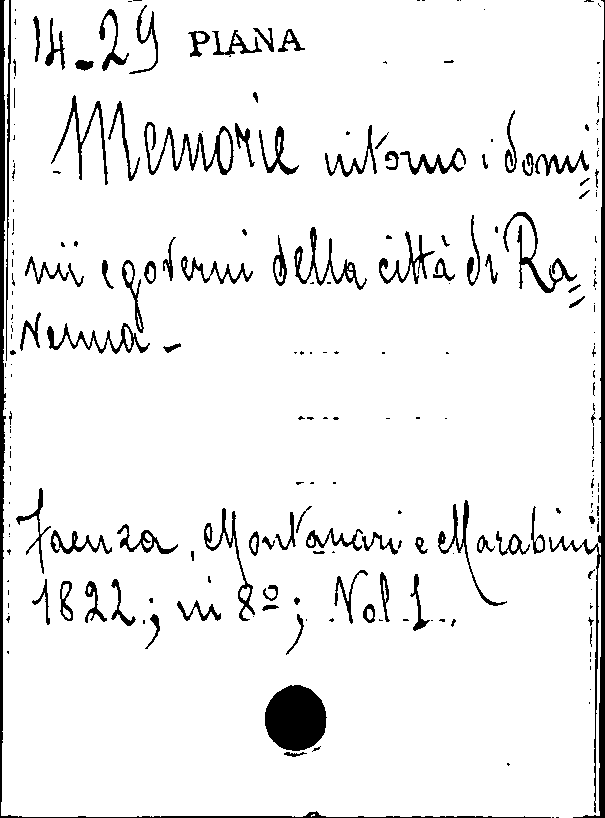 14-29 PIANA
Memorie intorno i domi=
nii e governi della città di Ra=
venna -
Faenza, Montanari e Marabini,
1822; in 8º; Vol 1.